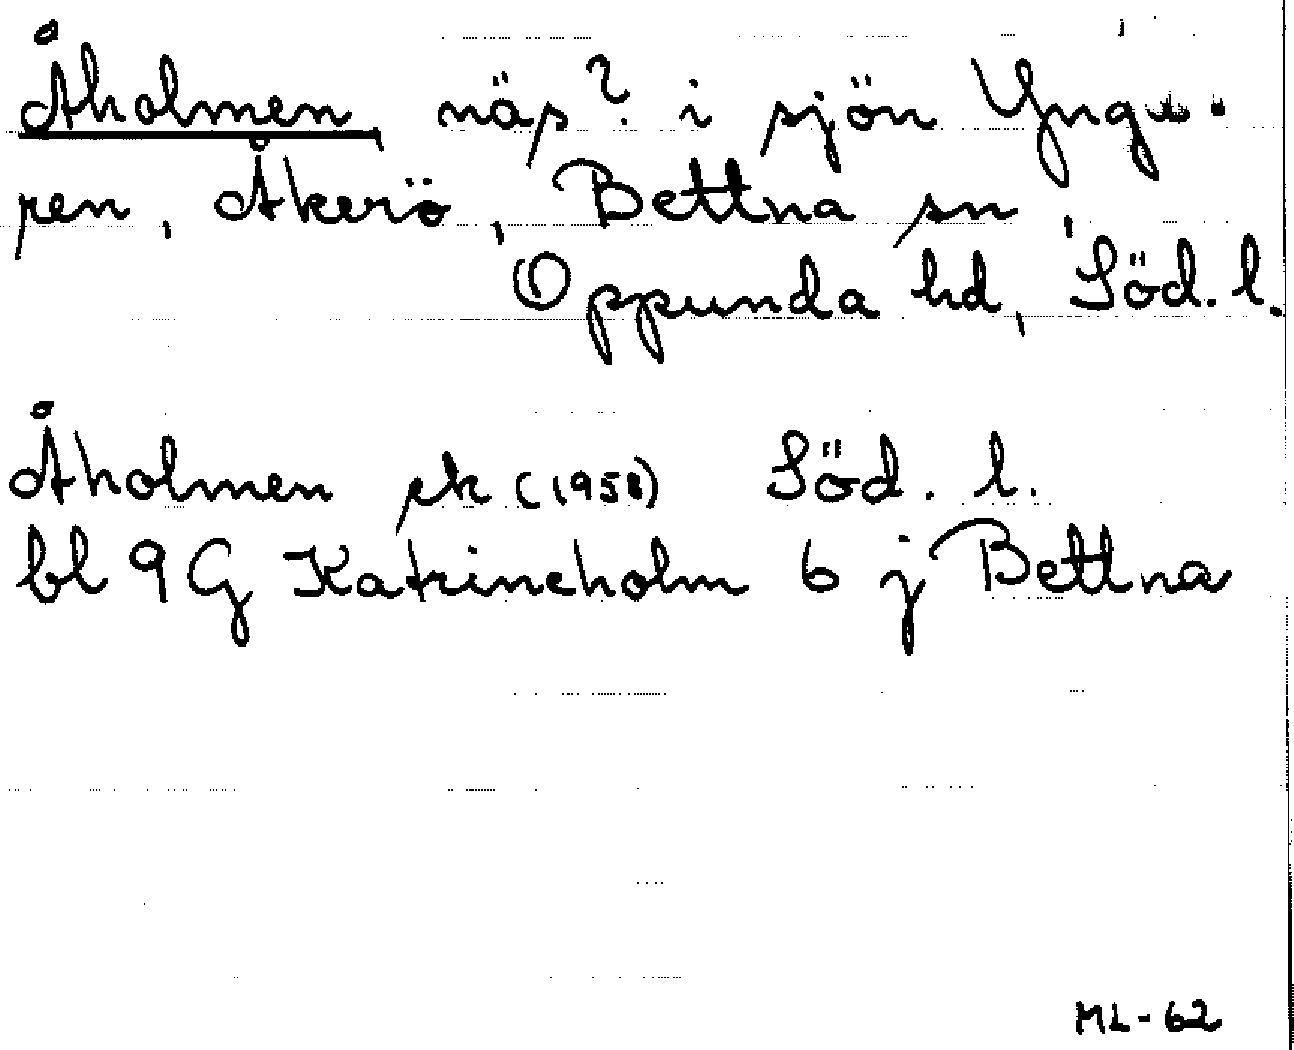 Åholmen näs? i sjön Yng-
ren, Åkerö, Bettna sn,
Oppunda hd, Söd. l.
Åholmen ek (1958) Söd. l.
bl 9 G Katrineholm 6 j Bettna
ML-62